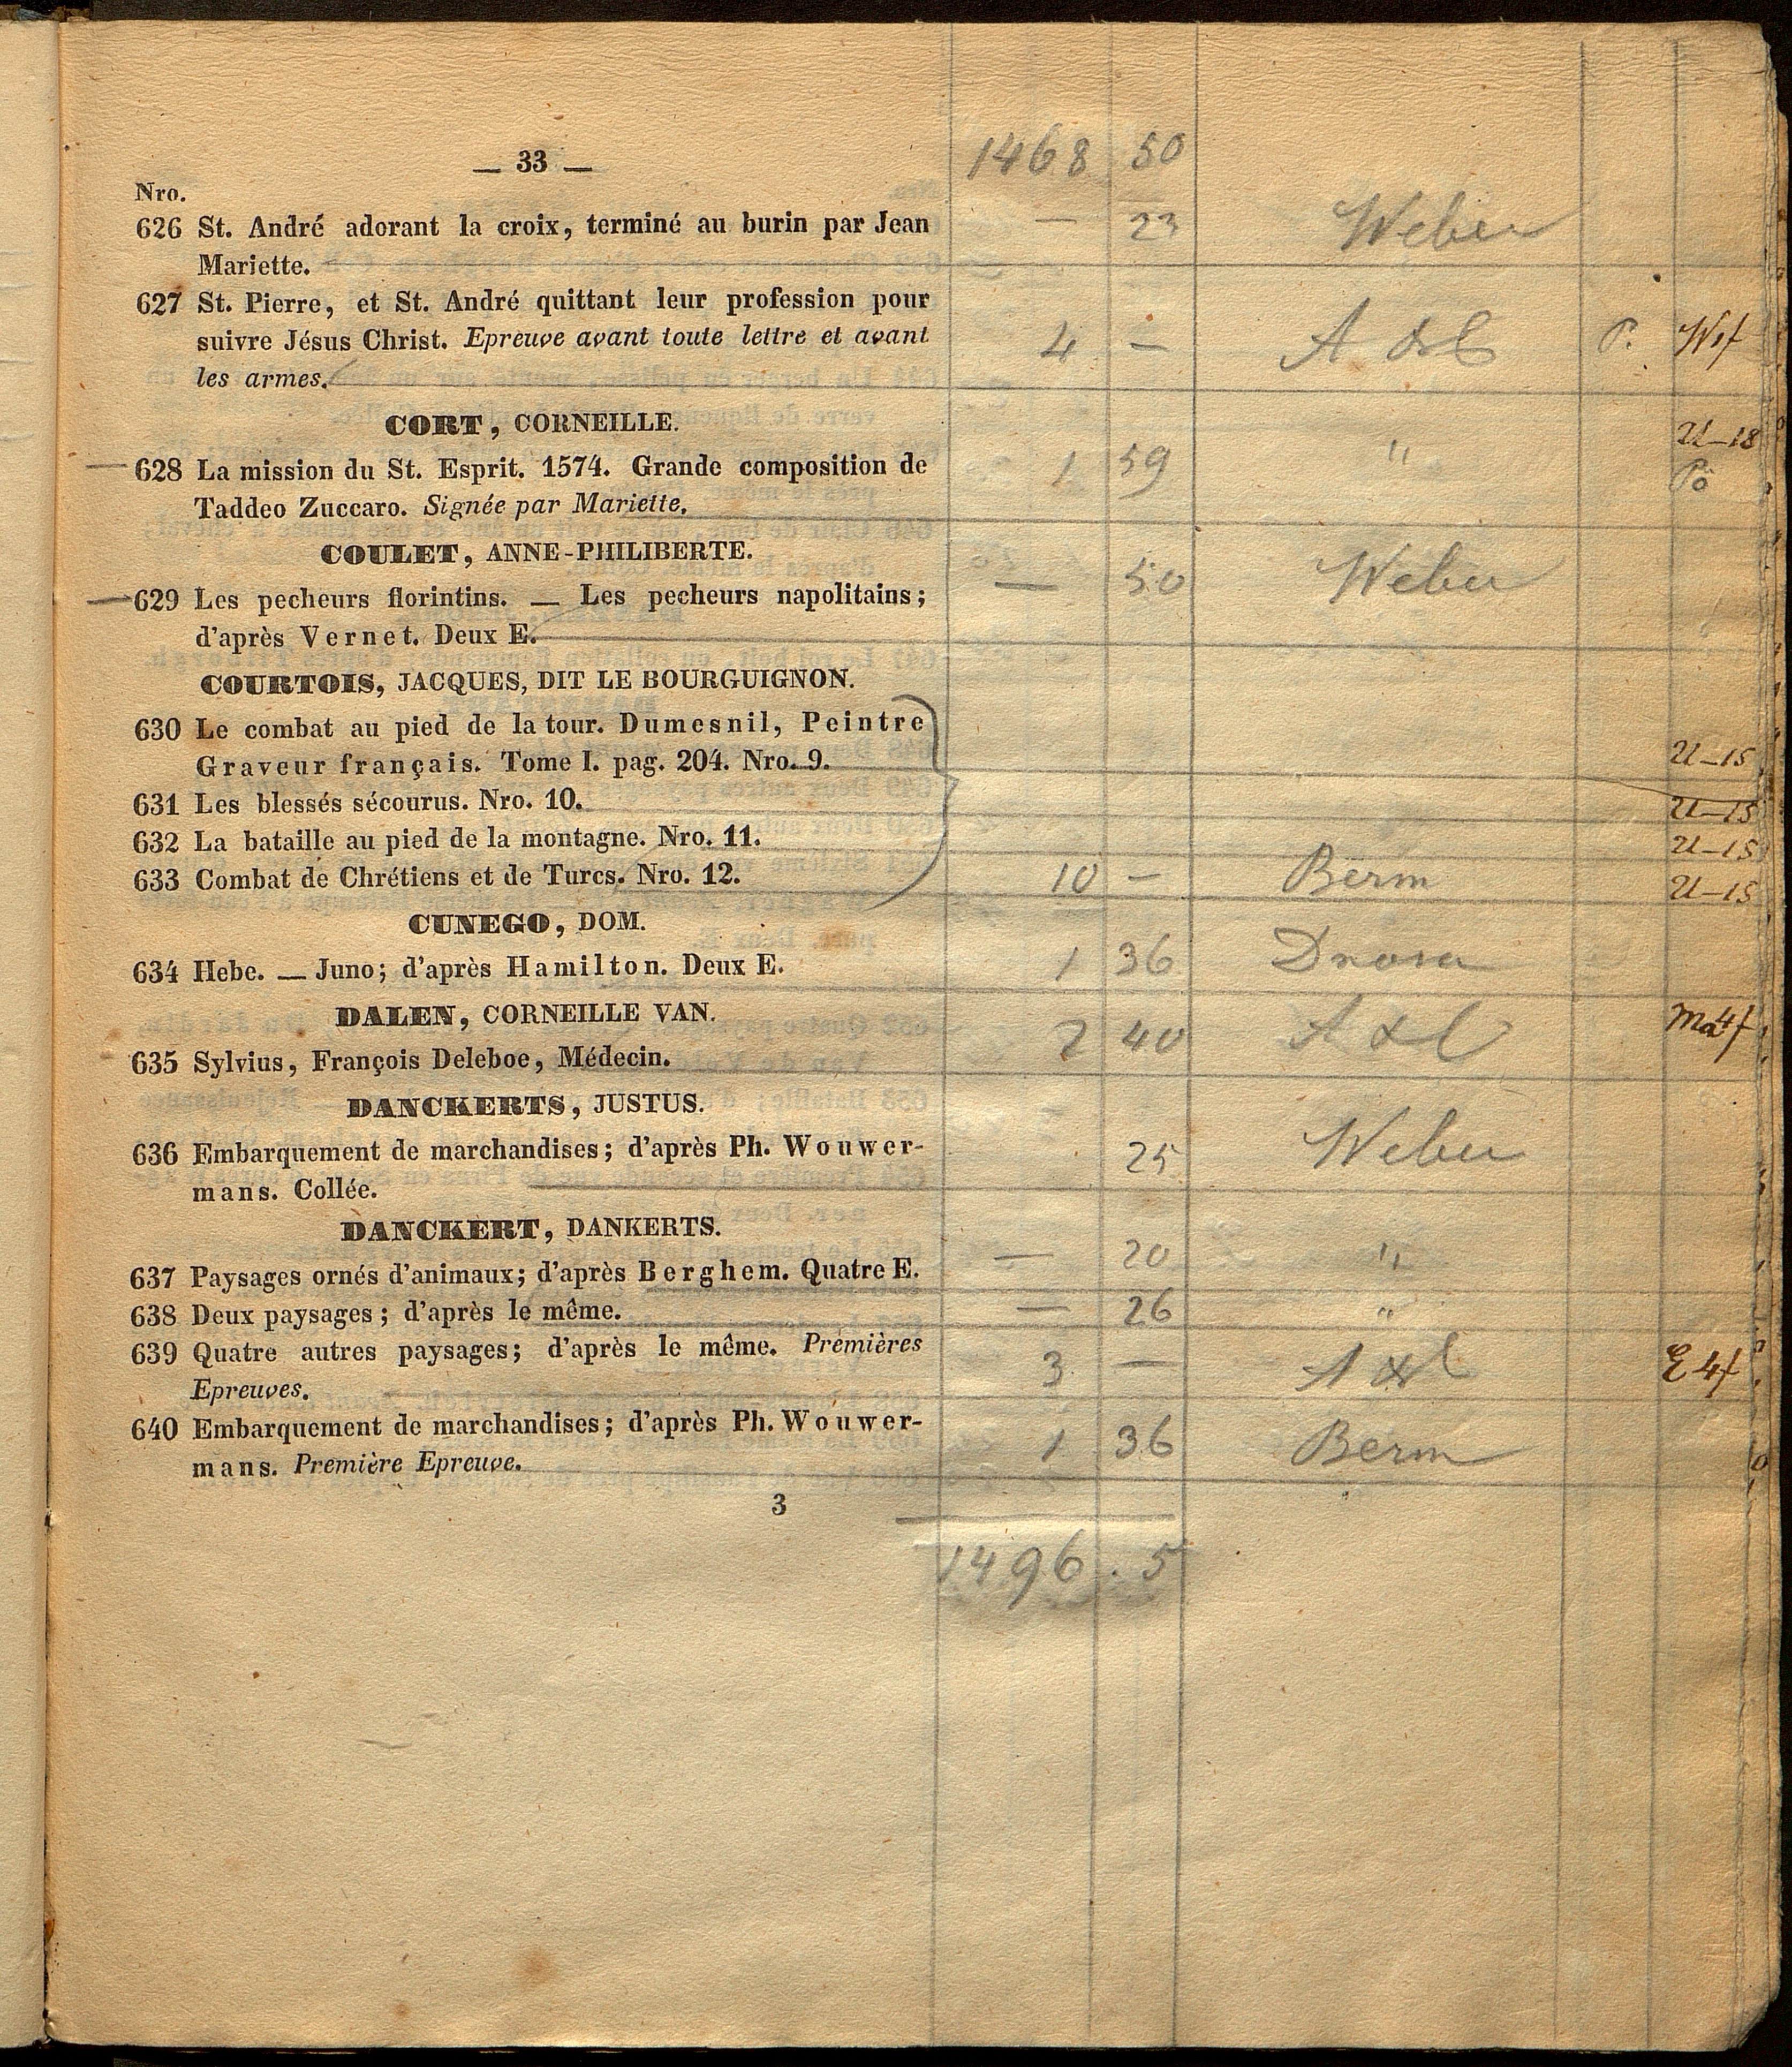 — 33 —
1468 50
Nro.
626 St. André adorant la croix, terminé au burin par Jean — 23 Weber
Mariette.
627 St. Pierre, et St. André quittant leur profession pour
suivre Jésus Christ. Epreuve avant toute lettre et avant 4 — P.
les armes.
CORT, CORNEILLE. U—18
— 628 La mission du St. Esprit. 1574. Grande composition de 1 59 "
Taddeo Zuccaro. Signée par Mariette.
COULET, ANNE-PHILIBERTE.
— 629 Les pecheurs florintins. — Les pecheurs napolitains; — 50 Weber
d'après Vernet. Deux E.
COURTOIS, JACQUES, DIT LE BOURGUIGNON.
630 Le combat au pied de la tour. Dumesnil, Peintre
Graveur français. Tome I. pag. 204. Nro. 9. U—15
631 Les blessés sécourus. Nro. 10. U—15
632 La bataille au pied de la montagne. Nro. 11. U—15
633 Combat de Chrétiens et de Turcs. Nro. 12. 10 — Berm U—15
CUNEGO, DOM.
634 Hebe. — Juno; d'après Hamilton. Deux E. 1 36
DALEN, CORNEILLE VAN.
635 Sylvius, François Deleboe, Médecin. 2 40
DANCKERTS, JUSTUS.
636 Embarquement de marchandises; d'après Ph. Wouwer- 25 Weber
mans. Collée.
DANCKERT, DANKERTS.
637 Paysages ornés d'animaux; d'après Berghem. Quatre E. — 20 "
638 Deux paysages; d'après le même. — 26 "
639 Quatre autres paysages; d'après le même. Prémières 3 —
Epreuves.
640 Embarquement de marchandises; d'après Ph. Wouwer- 1 36 Berm
mans. Première Epreuve.
3
1496 . 5